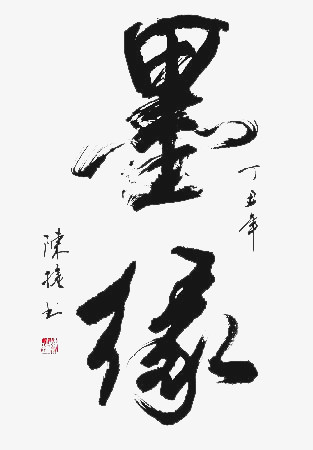 墨缘
丁丑年
陳捷书